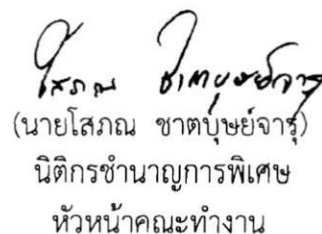 โสภณ ชาตบุษย์จารุ
(นายโสภณ ชาตบุษย์จารุ)
นิติกรชำนาญการพิเศษ
หัวหน้าคณะทำงาน